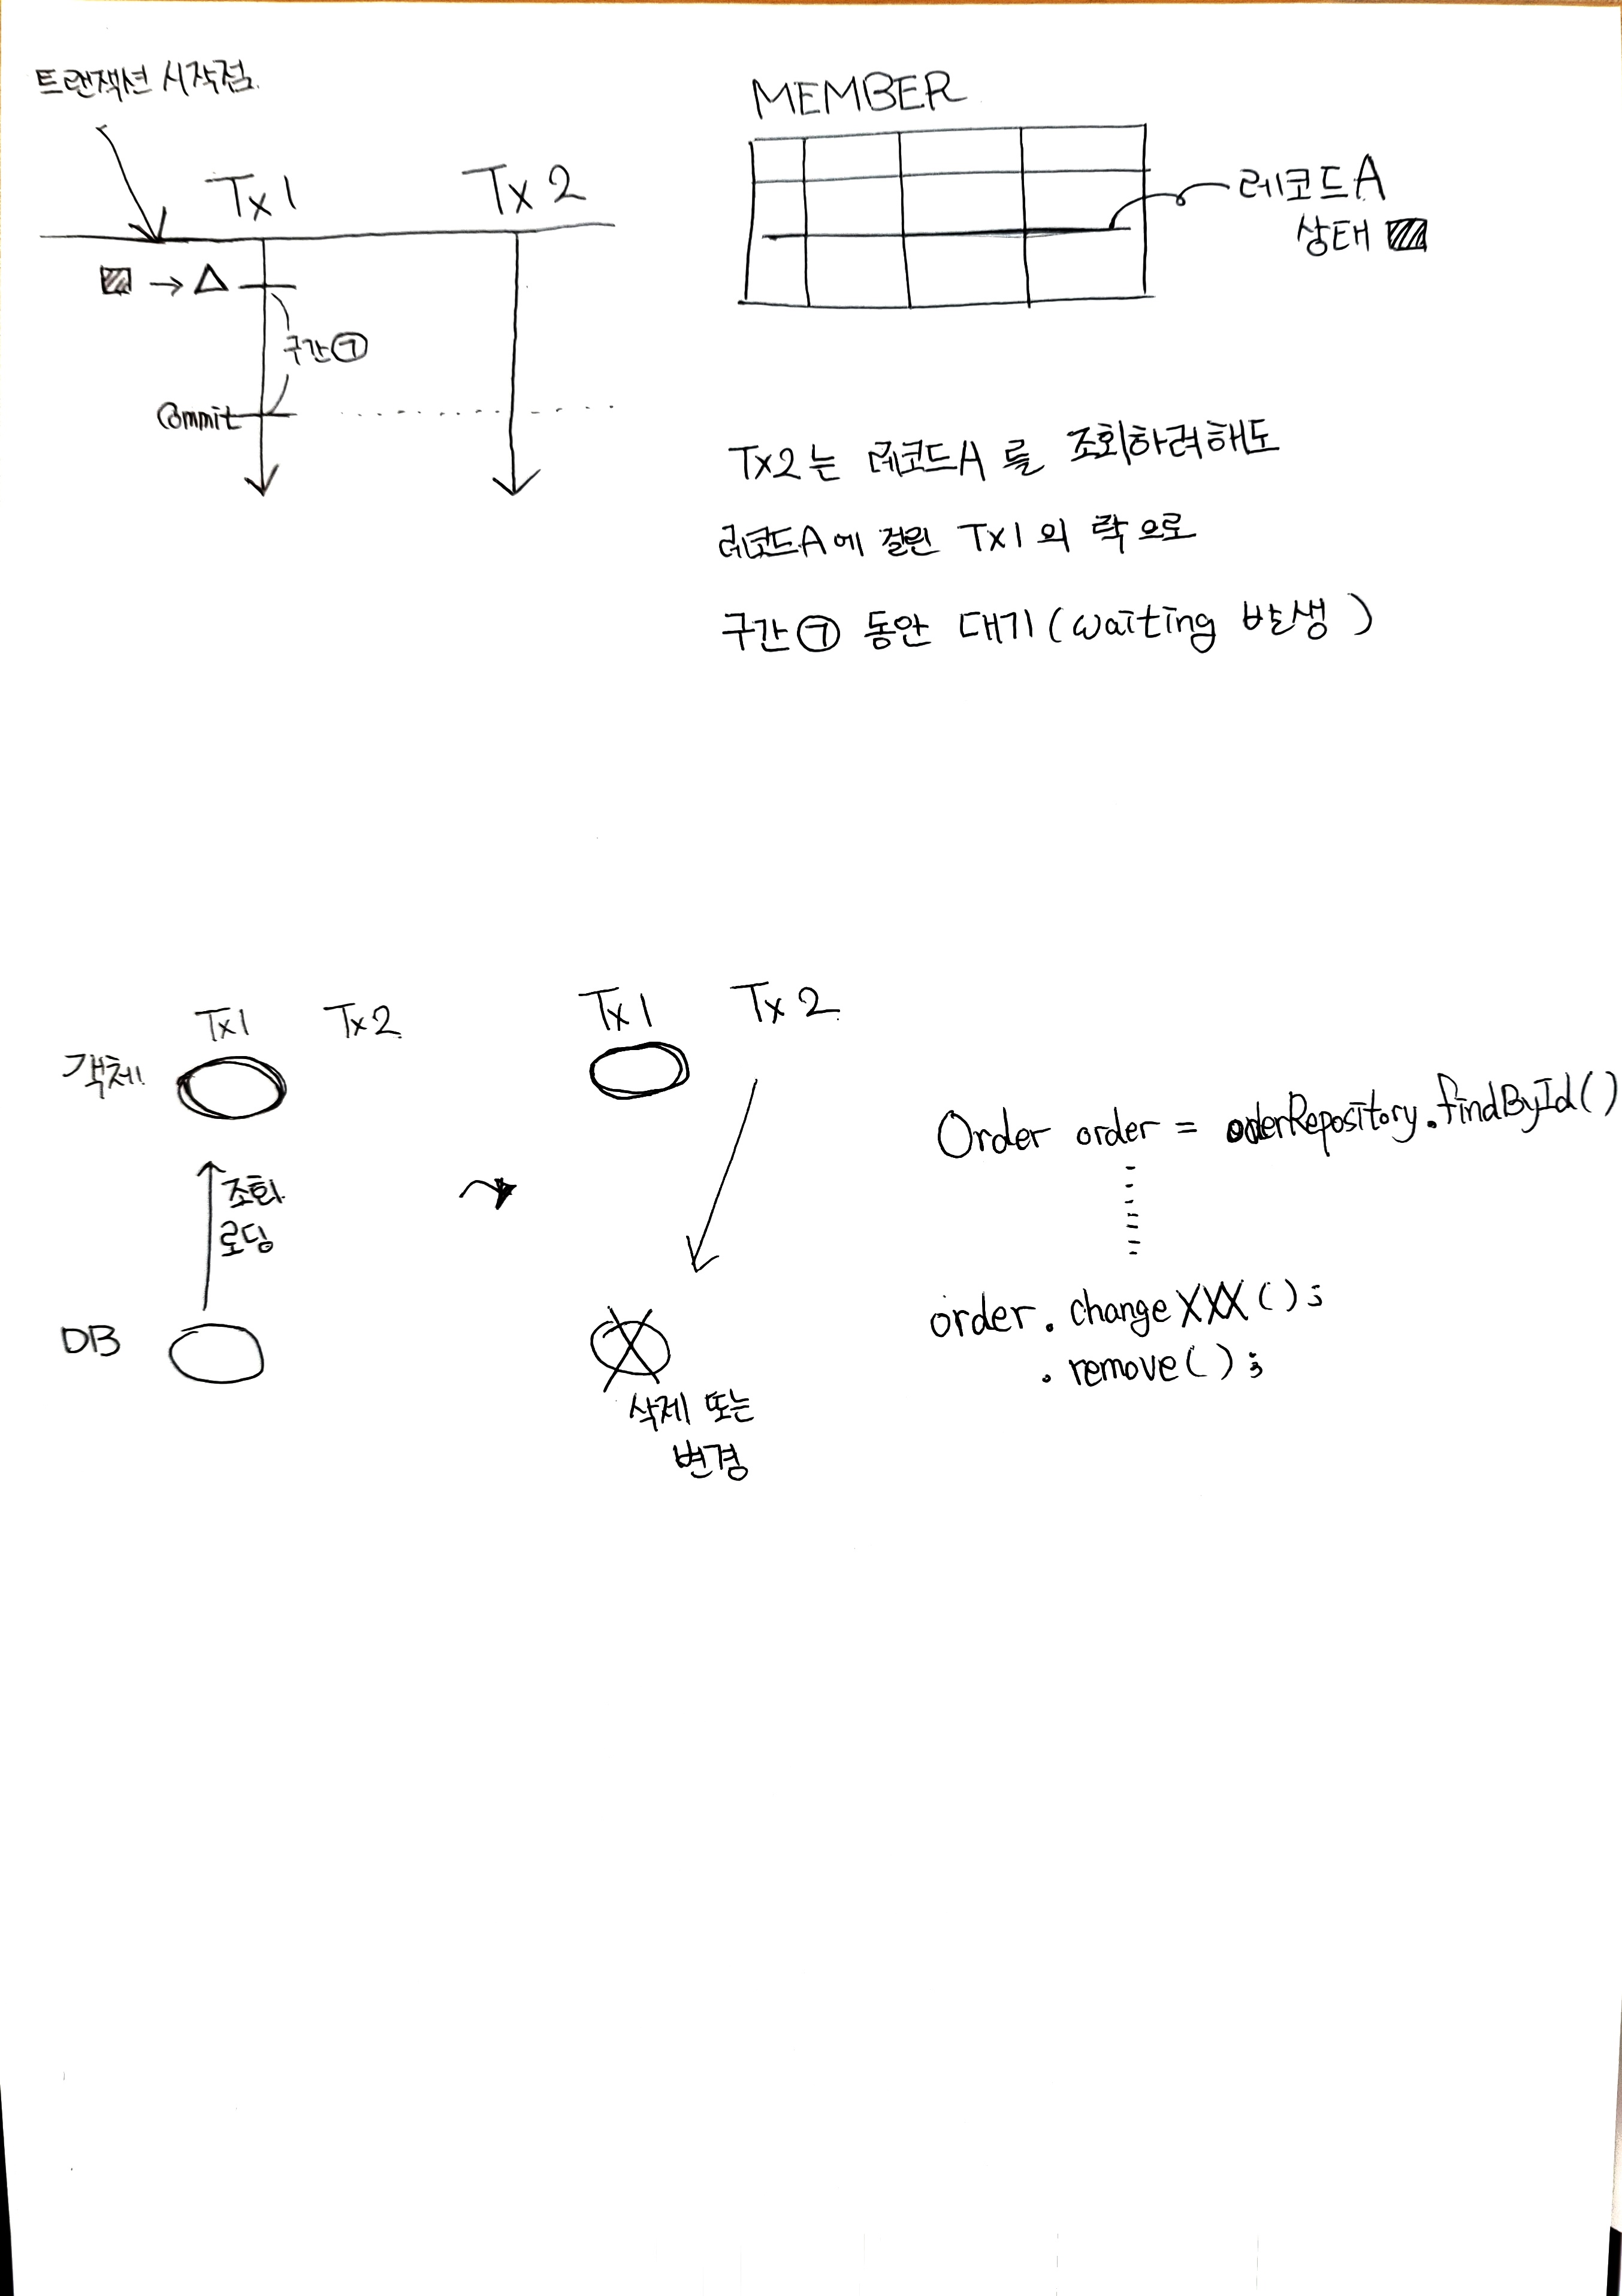 트랜잭션 시작점.
Tx1
Tx2
→
구간㉠
Commit
MEMBER
레코드A
상태
Tx2는 레코드A 를 조회하려해도
레코드A에 걸린 Tx1의 락으로
구간㉠ 동안 대기(waiting 발생)
Tx1 Tx2
객체
조회
로딩
DB
Tx1 Tx2
삭제 또는
변경
Order order = oderRepository.findById()
order.changeXXX();
.remove();